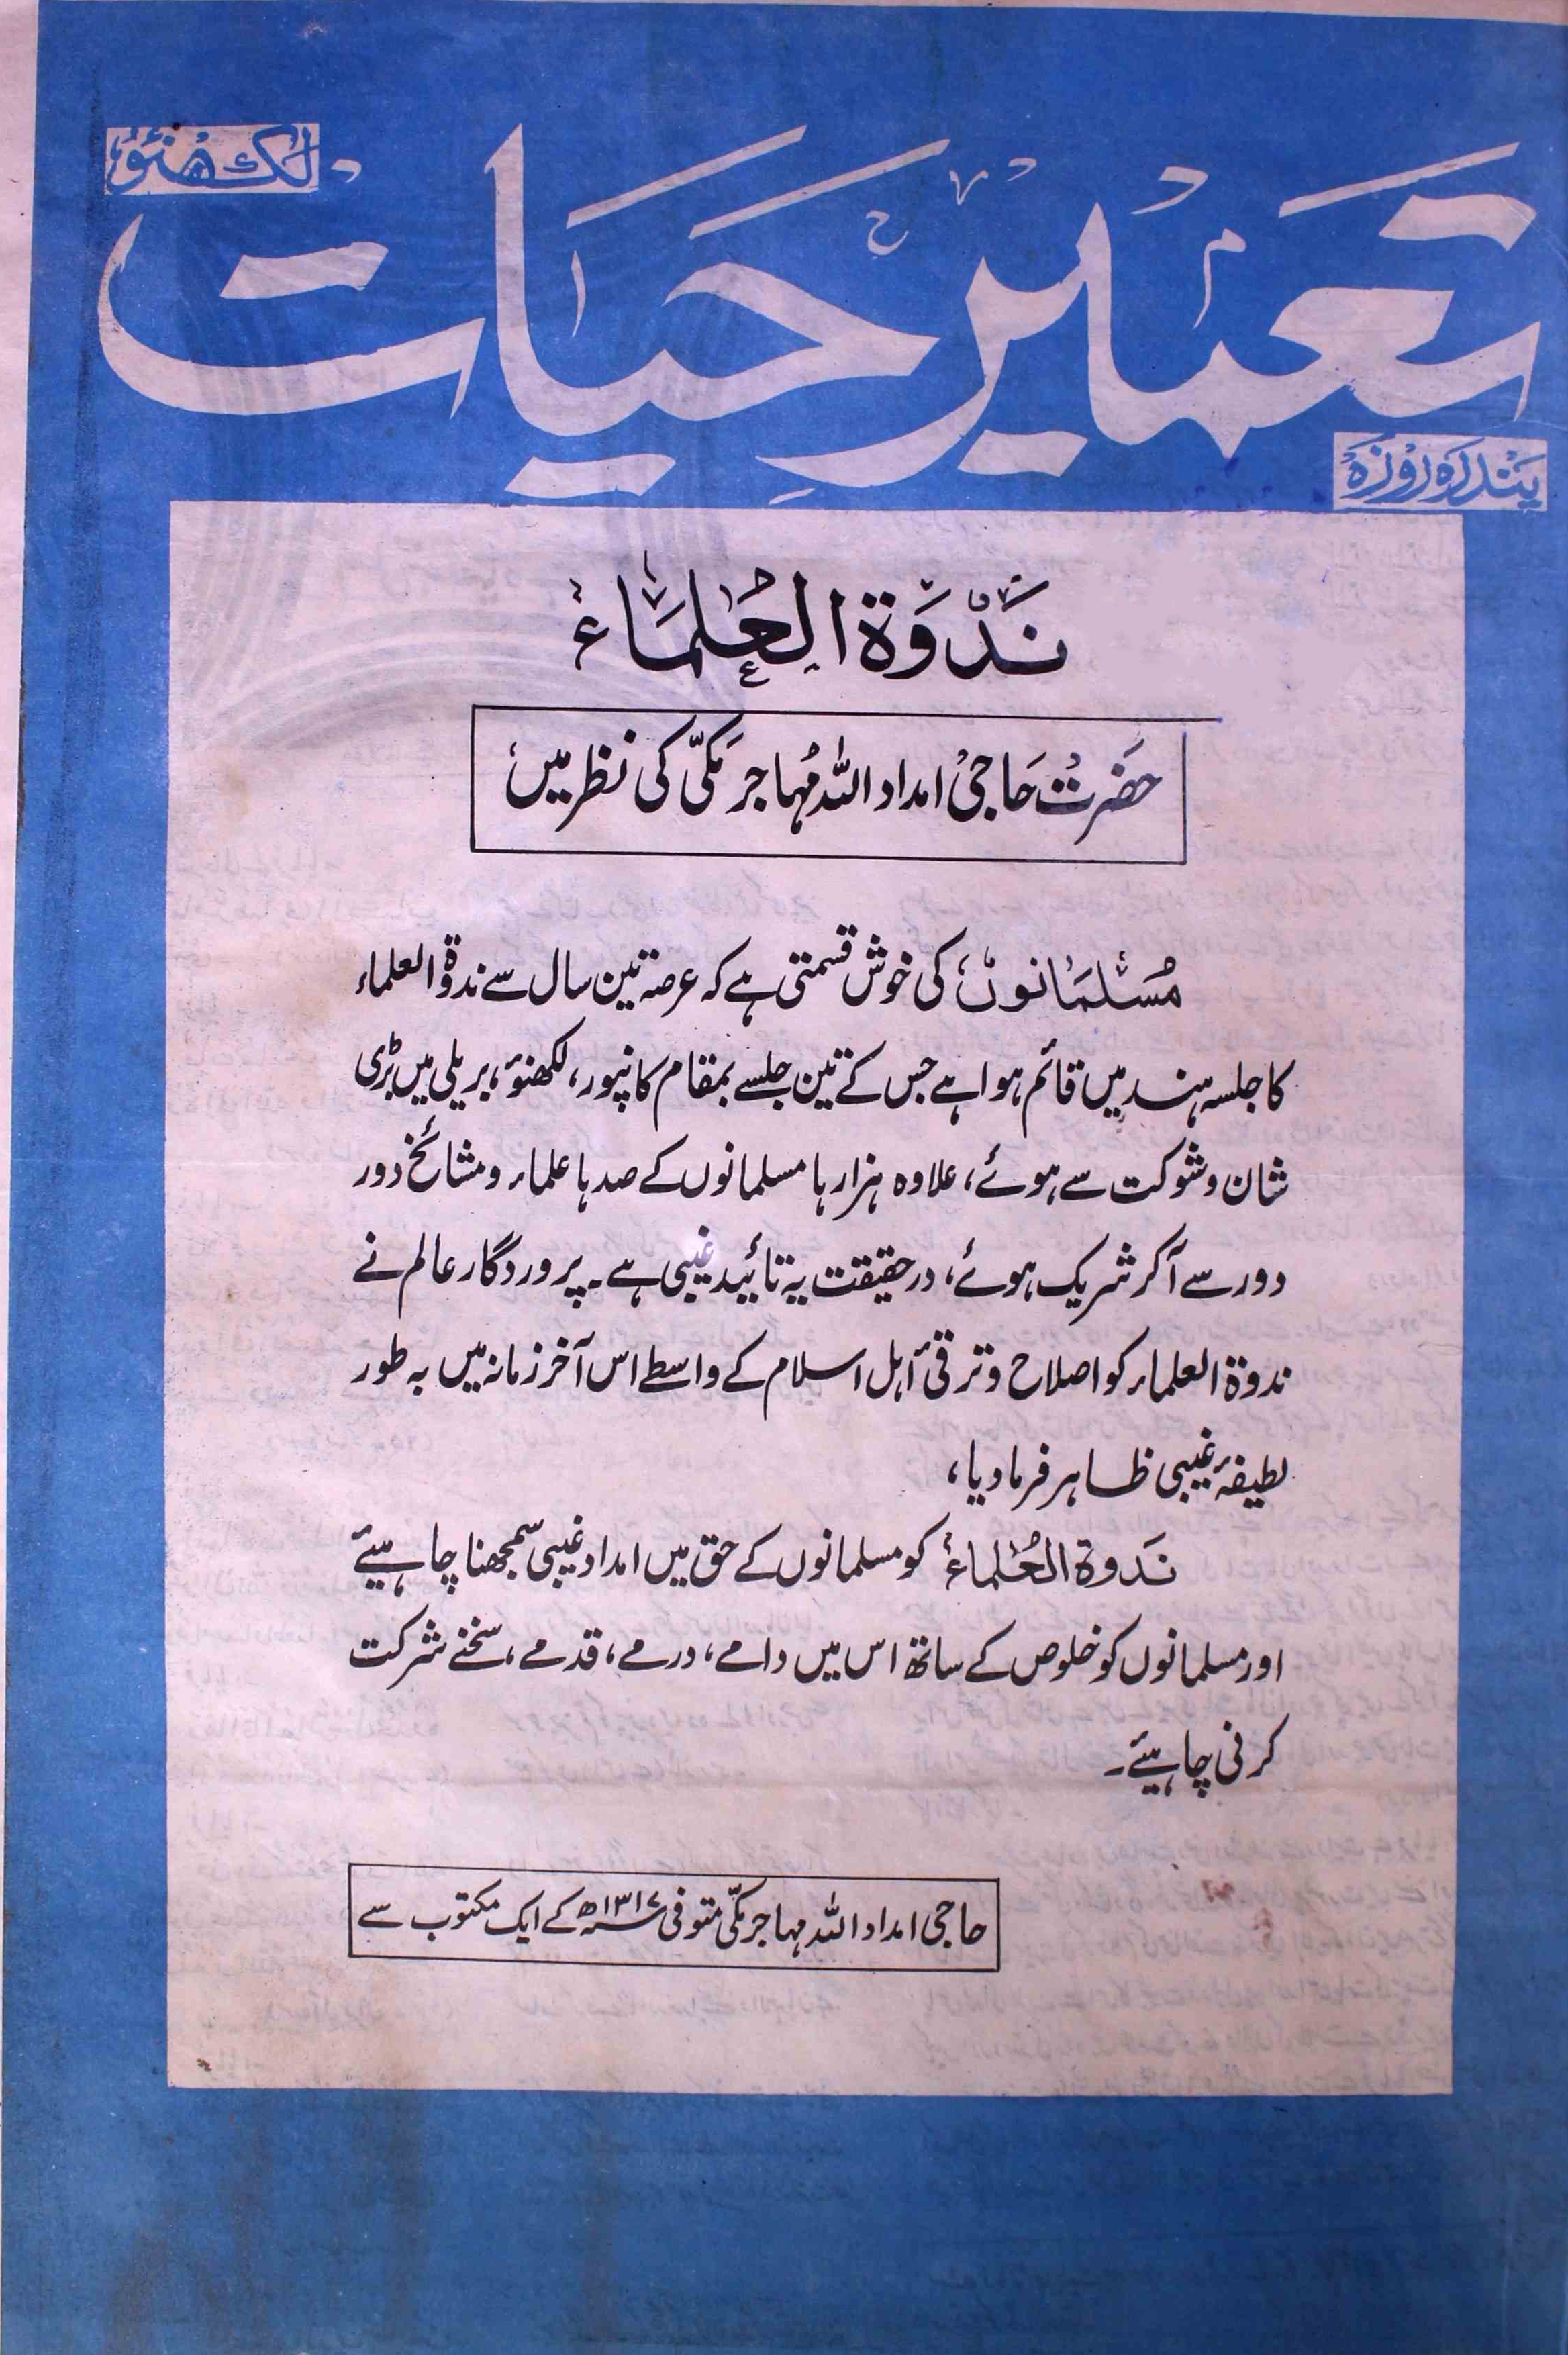 لکھنؤ
تعمیر حیات
پندرہ روزہ
ندوۃ العلماء
حضرت حاجی امداد اللہ مہاجر مکیؒ کی نظر میں
مسلمانوں کی خوش قسمتی ہے کہ عرصہ تین سال سے ندوۃ العلماء
کا جلسہ ہند میں قائم ہوا ہے جس کے تین جلسے بمقام کانپور، لکھنؤ، بریلی میں بڑی
شان و شوکت سے ہوئے، علاوہ ہزارہا مسلمانوں کے صدہا علماء و مشائخ دور
دور سے آکر شریک ہوئے، در حقیقت یہ تائید غیبی ہے۔ پروردگار عالم نے
ندوۃ العلماء کو اصلاح و ترقئ اہل اسلام کے واسطے اس آخر زمانہ میں بہ طور
لطیفۂ غیبی ظاہر فرما دیا،
ندوۃ العلماء کو مسلمانوں کے حق میں امداد غیبی سمجھنا چاہیئے
اور مسلمانوں کو خلوص کے ساتھ اس میں دامے، درمے، قدمے، سخنے شرکت
کرنی چاہیئے۔
حاجی امداد اللہ مہاجر مکیؒ متوفی ۱۳۱۷ھ کے ایک مکتوب سے